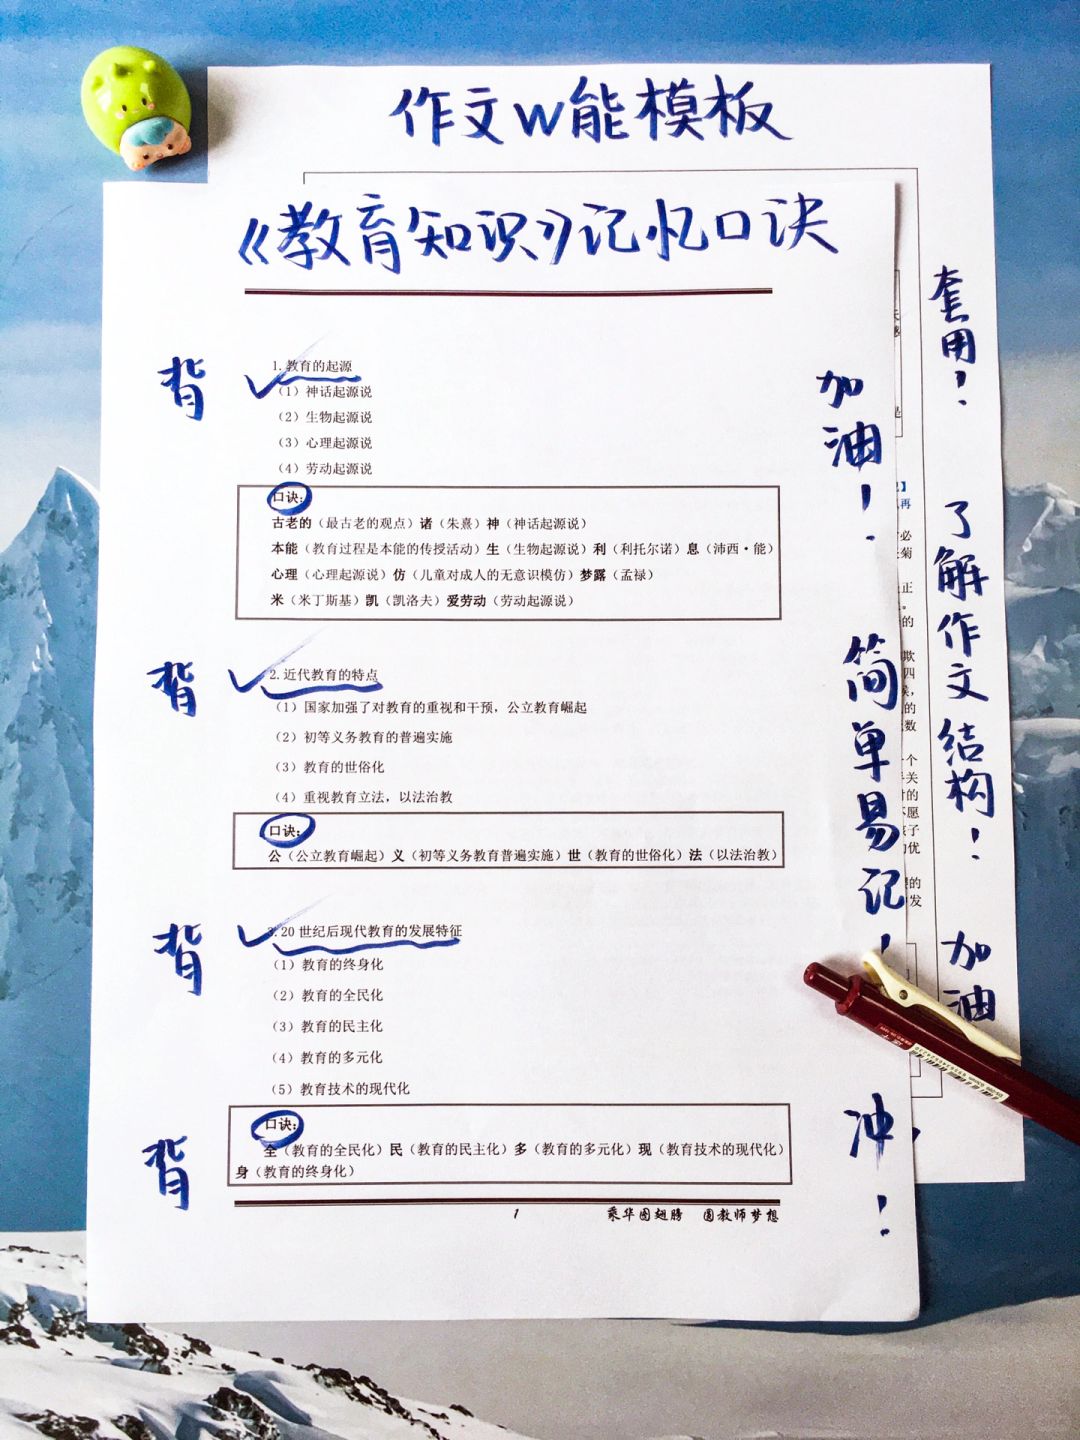 作文W能模板
《教育知识》记忆口诀
1.教育的起源
（1）神话起源说
（2）生物起源说
（3）心理起源说
（4）劳动起源说
口诀：
古老的（最古老的观点）诸（朱熹）神（神话起源说）
本能（教育过程是本能的传授活动）生（生物起源说）利（利托尔诺）息（沛西·能）
心理（心理起源说）仿（儿童对成人的无意识模仿）梦露（孟禄）
米（米丁斯基）凯（凯洛夫）爱劳动（劳动起源说）
2.近代教育的特点
（1）国家加强了对教育的重视和干预，公立教育崛起
（2）初等义务教育的普遍实施
（3）教育的世俗化
（4）重视教育立法，以法治教
口诀：
公（公立教育崛起）义（初等义务教育普遍实施）世（教育的世俗化）法（以法治教）
3.20世纪后现代教育的发展特征
（1）教育的终身化
（2）教育的全民化
（3）教育的民主化
（4）教育的多元化
（5）教育技术的现代化
口诀：
全（教育的全民化）民（教育的民主化）多（教育的多元化）现（教育技术的现代化）
身（教育的终身化）
1 乘华图翅膀 圆教师梦想
背
背
背
背
加油！
简单易记！
冲！
套用！
了解作文结构！
加油